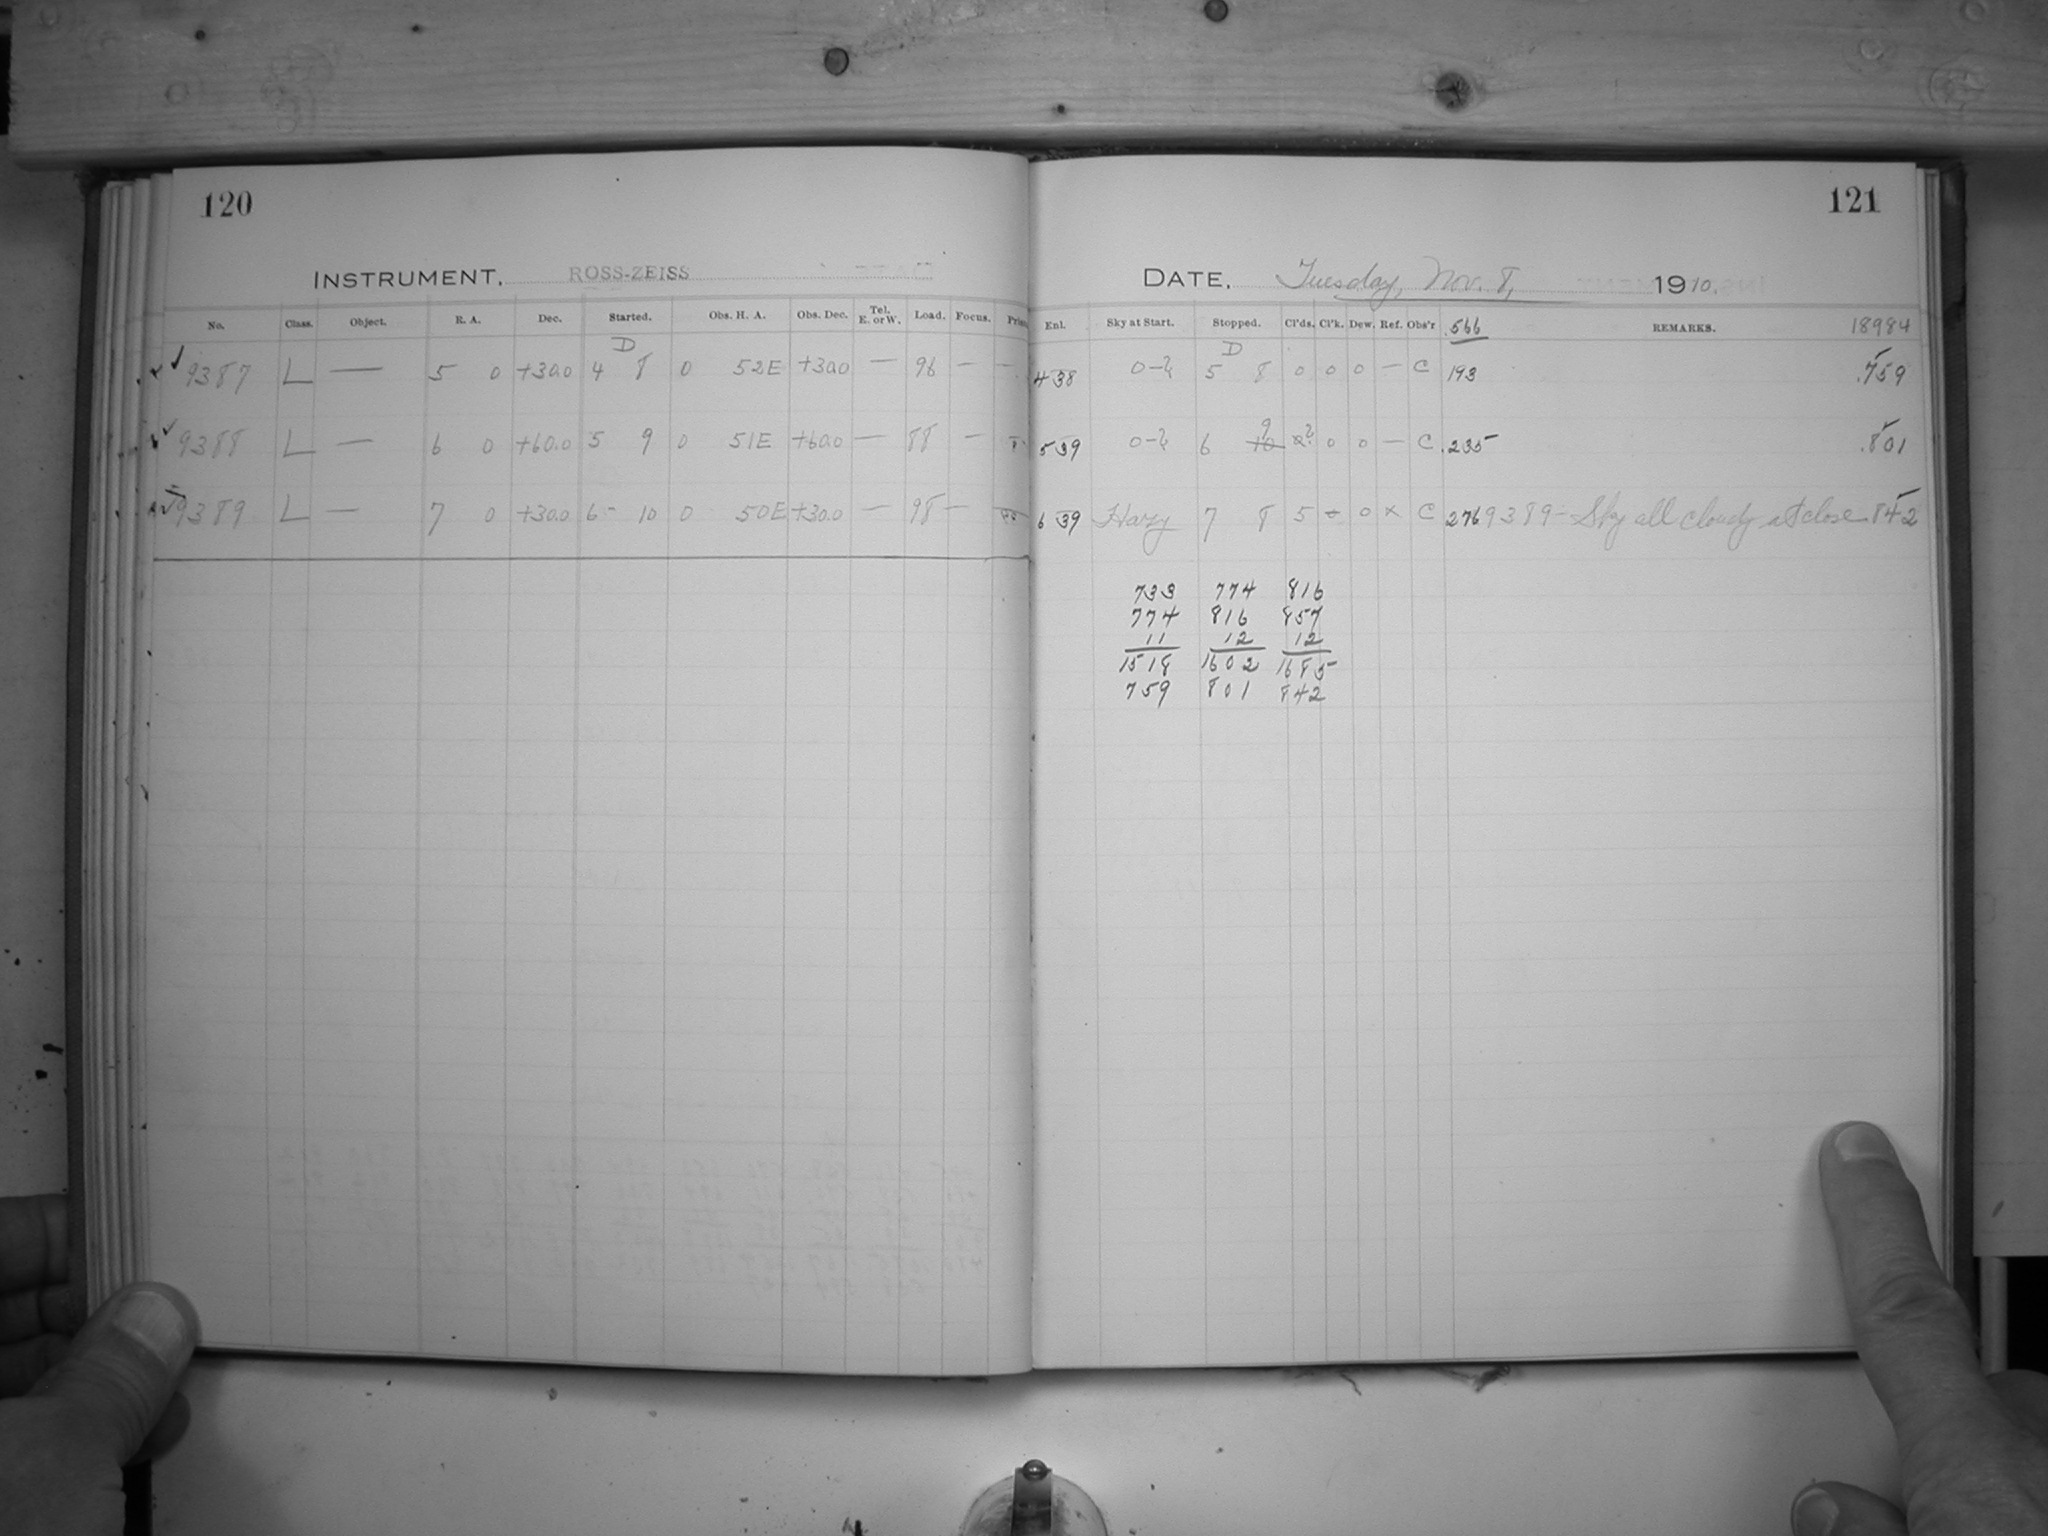 120
INSTRUMENT. ROSS-ZEISS
No. Class. Object. R. A. Dec. Started. Obs. H. A. Obs. Dec. Tel. E. or W. Load. Focus.
D
9387 L — 5 0 +30.0 4 8 0 52E +30.0 — 96 — —
9388 L — 6 0 +60.0 5 9 0 51E +60.0 — 88 —
9389 L — 7 0 +30.0 6 10 0 50E +30.0 — 98 —
121
DATE. Tuesday, Nov. 8, 1910.
Enl. Sky at Start. Stopped. Cl'ds. Cl'k. Dew. Ref. Obs'r .566 REMARKS. 18984
D
4 38 5 8 0 0 0 — C 193 .759
9
5 39 6 10 0 0 — C .235 .801
6 39 Hazy 7 8 5 0 × C 276 9389 — Sky all cloudy at close 842
733 774 816
774 816 857
11 12 12
1518 1602 1685
759 801 842